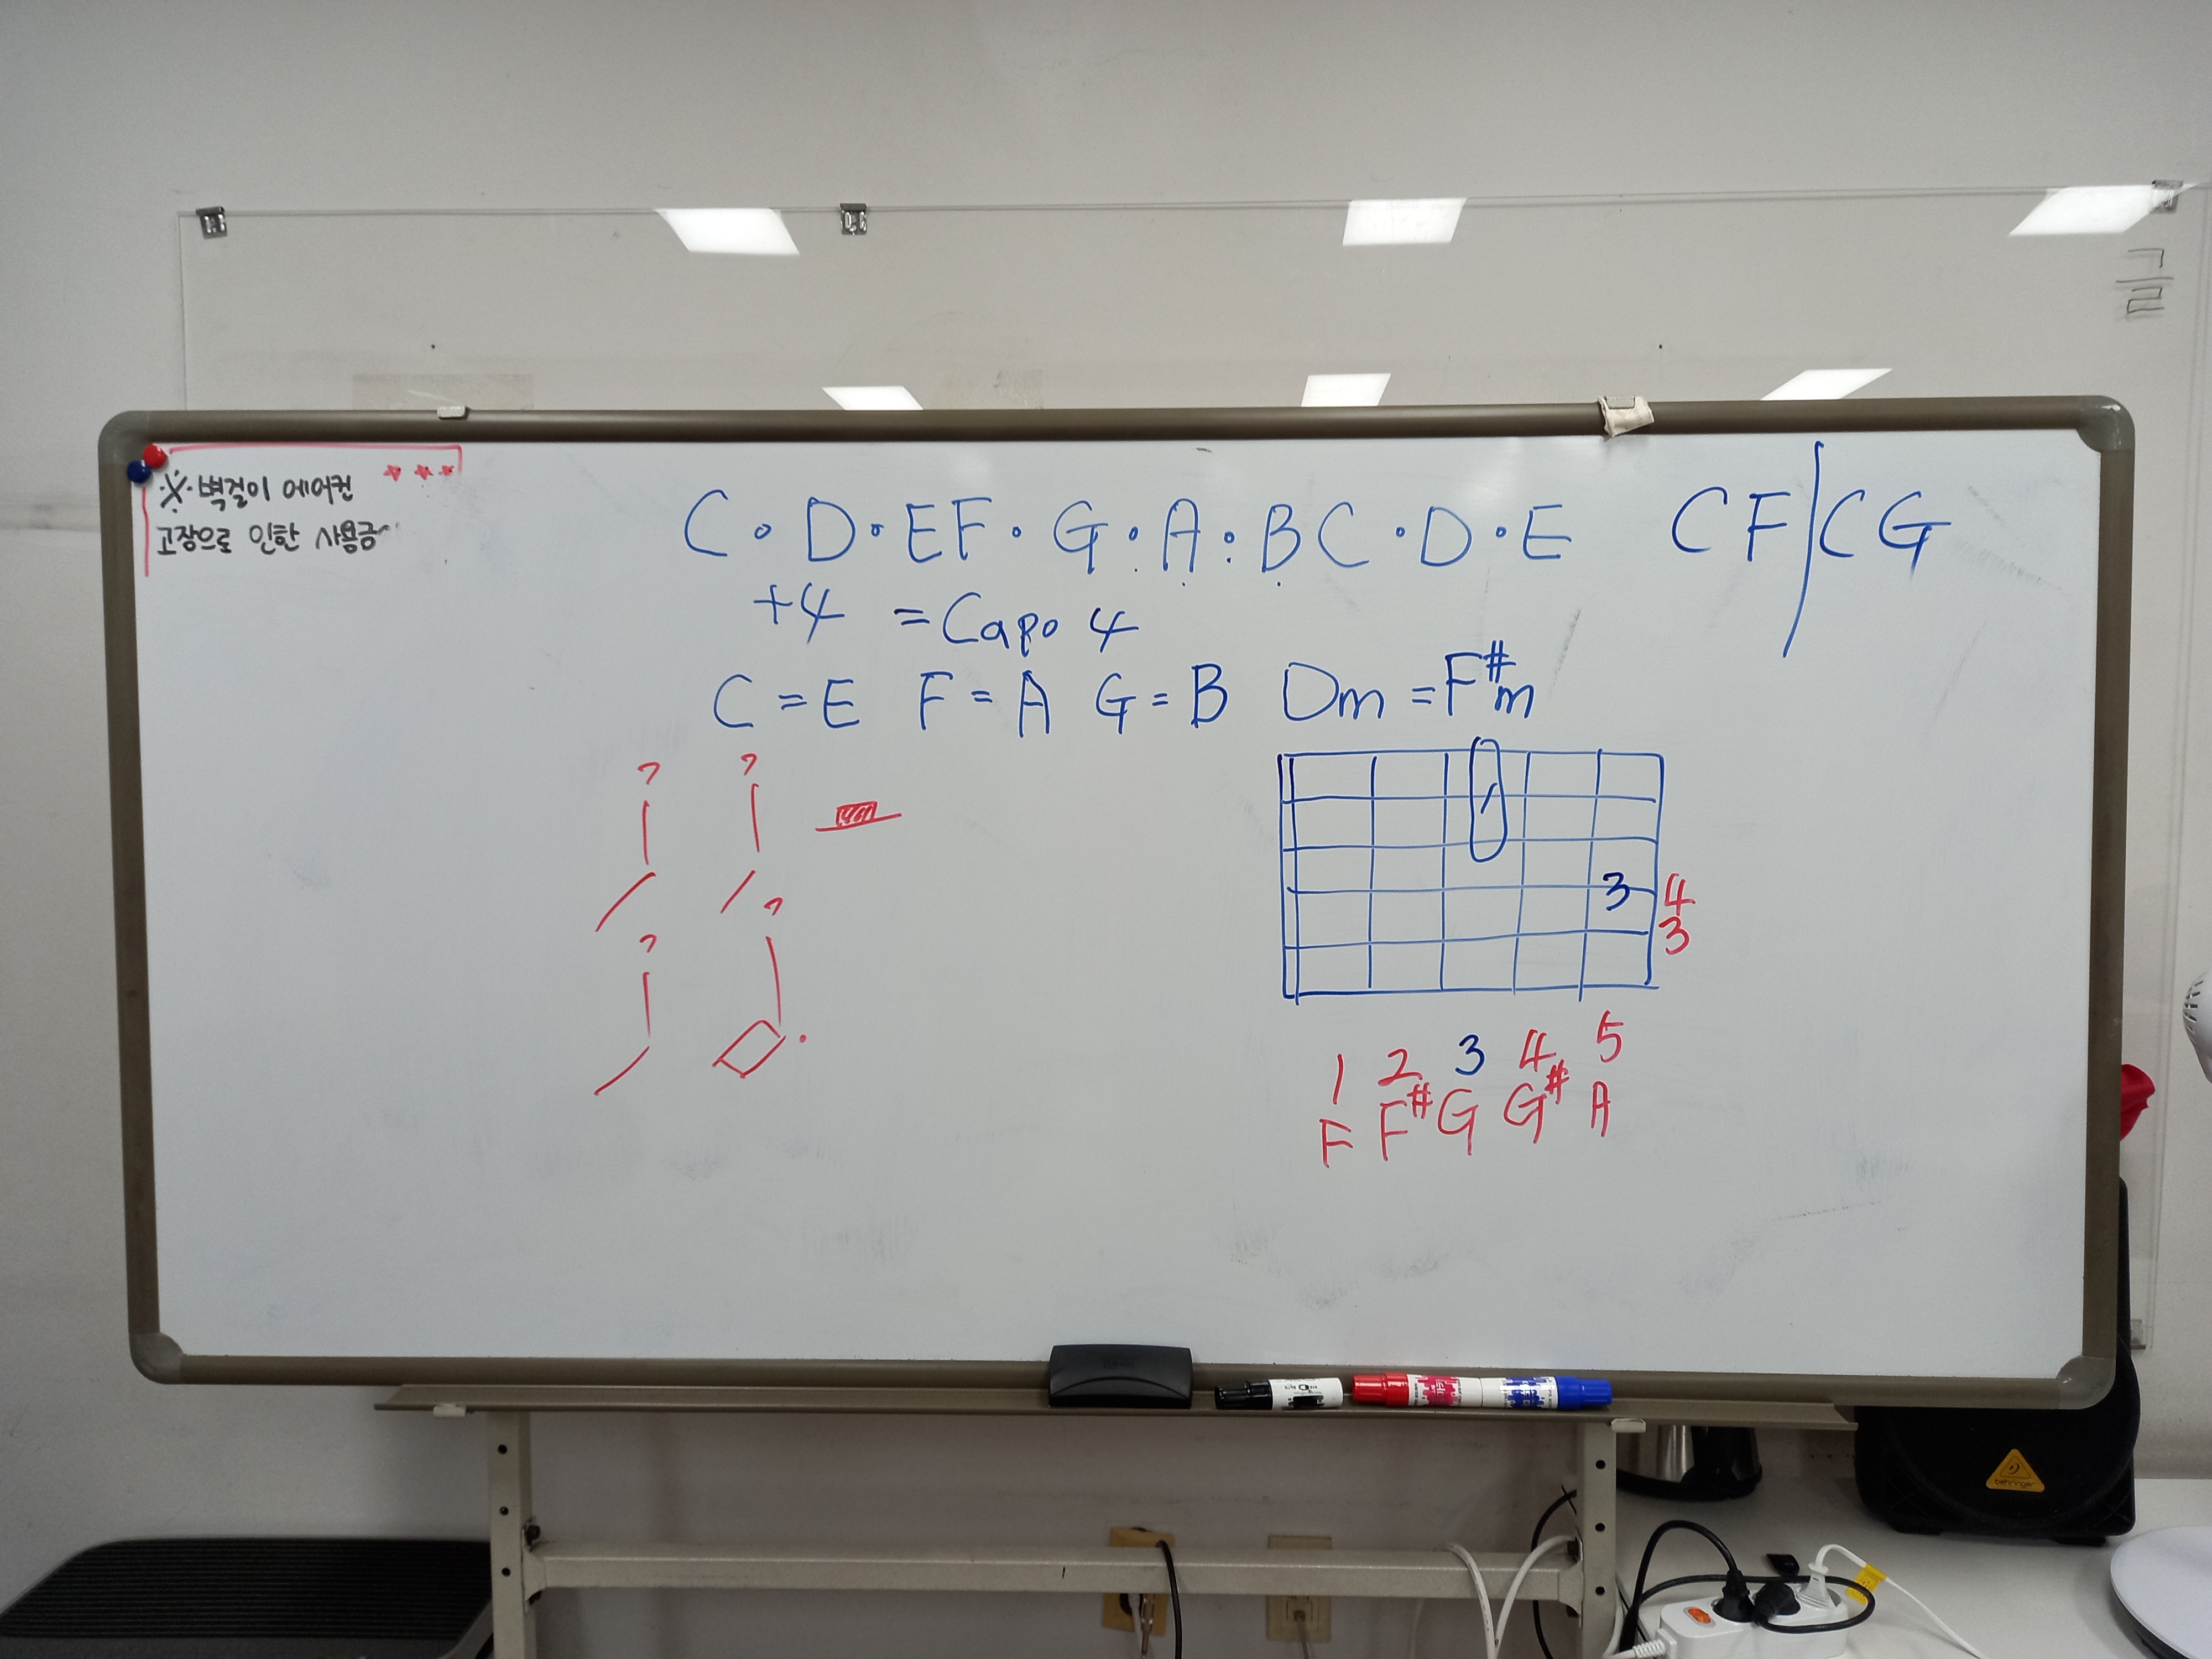 ※ 벽걸이 에어컨
고장으로 인한 사용금
C · D · E F · G · A · B C · D · E
C F / C G
+4 = Capo 4
C = E F = A G = B Dm = F#m
1
3
4
3
1 2 3 4 5
F F# G G# A
behringer